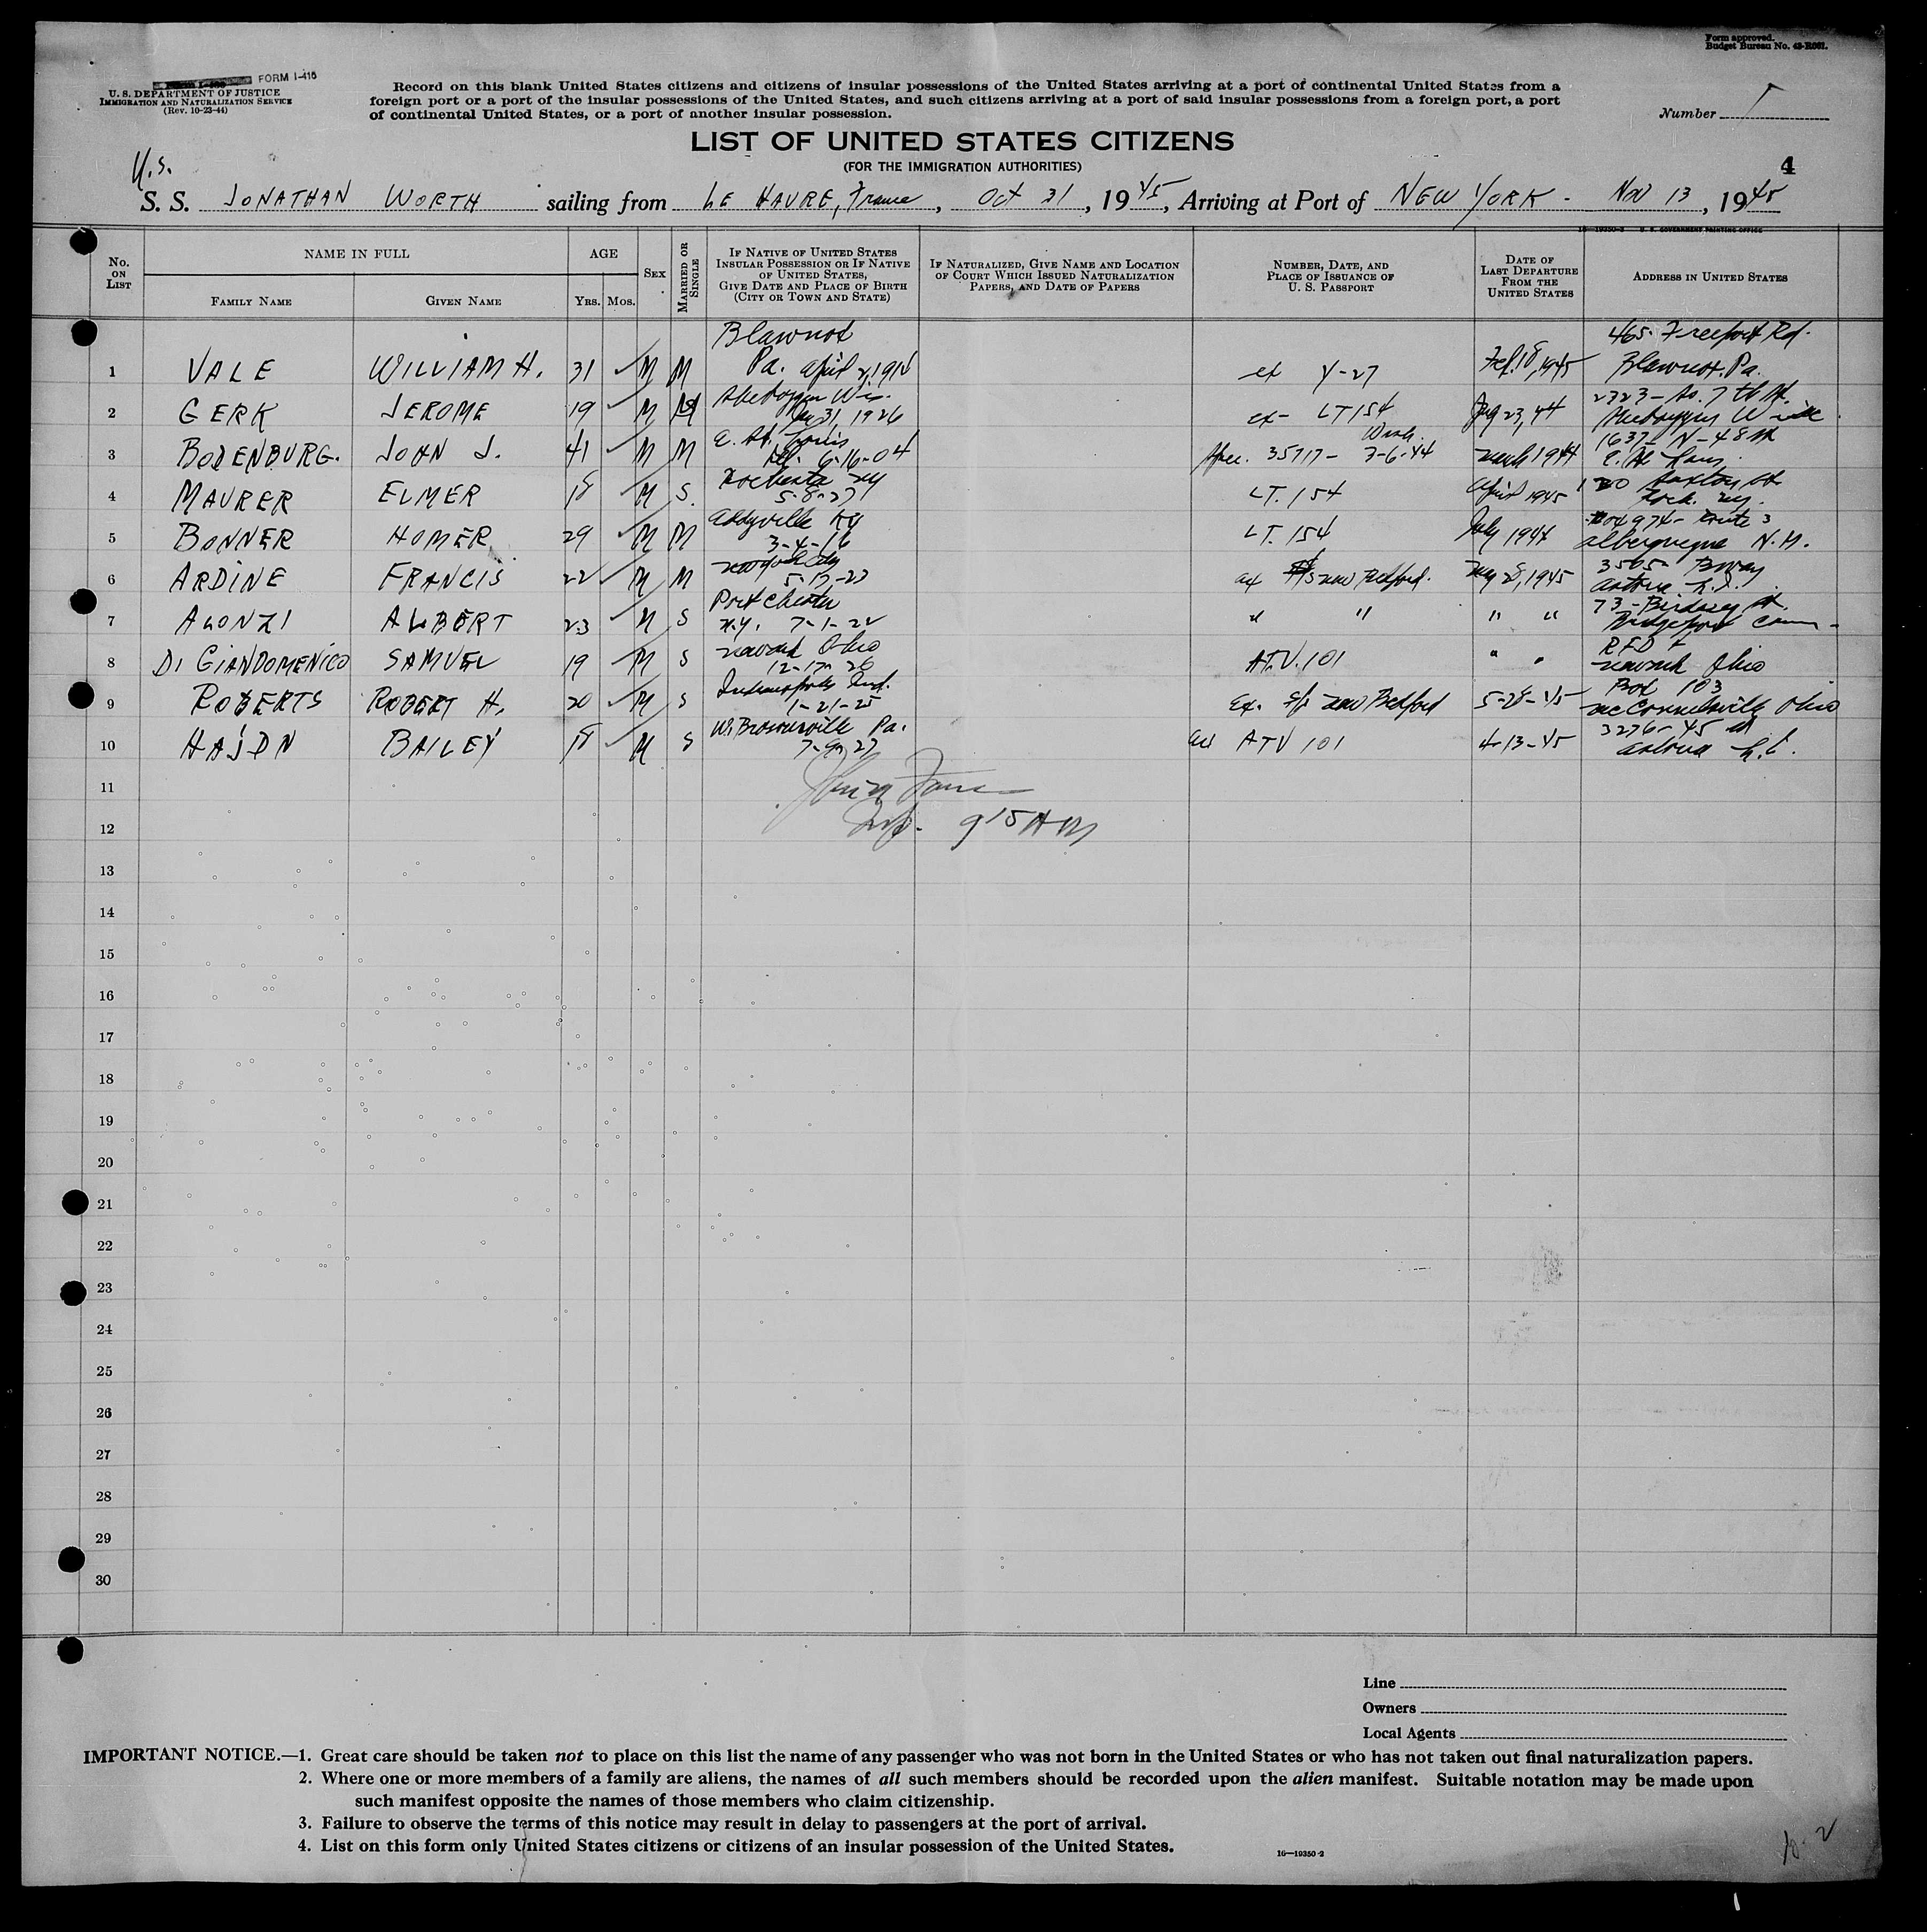 Form approved.
Budget Bureau No. 43-R081.
FORM I-415
U. S. DEPARTMENT OF JUSTICE
IMMIGRATION AND NATURALIZATION SERVICE
(Rev. 10-23-44)
Record on this blank United States citizens and citizens of insular possessions of the United States arriving at a port of continental United States from a
foreign port or a port of the insular possessions of the United States, and such citizens arriving at a port of said insular possessions from a foreign port, a port
of continental United States, or a port of another insular possession.
Number
LIST OF UNITED STATES CITIZENS
(FOR THE IMMIGRATION AUTHORITIES)
4
U.S.
S. S. JONATHAN WORTH sailing from LE HAVRE, France, Oct 31, 1945, Arriving at Port of NEW YORK - Nov 13, 1945
16-19350-2 U. S. GOVERNMENT PRINTING OFFICE
No. ON LIST
NAME IN FULL
FAMILY NAME
GIVEN NAME
AGE
YRS.
MOS.
SEX
MARRIED OR SINGLE
IF NATIVE OF UNITED STATES
INSULAR POSSESSION OR IF NATIVE
OF UNITED STATES,
GIVE DATE AND PLACE OF BIRTH
(CITY OR TOWN AND STATE)
IF NATURALIZED, GIVE NAME AND LOCATION
OF COURT WHICH ISSUED NATURALIZATION
PAPERS, AND DATE OF PAPERS
NUMBER, DATE, AND
PLACE OF ISSUANCE OF
U. S. PASSPORT
DATE OF
LAST DEPARTURE
FROM THE
UNITED STATES
ADDRESS IN UNITED STATES
Blawnox 465 Freeport Rd.
1 VALE WILLIAM H. 31 M M Pa. April 2, 1914 ex Y-27 Feb 18, 1945 Blawnox. Pa.
Sheboygan Wis. 2323 - So. 7th St.
2 GERK JEROME 19 M 31, 1926 ex- LT 154 Aug 23, 44 Sheboygan
E. St. Louis Wash. 1637 - N - 48 St
3 BODENBURG. JOHN J. 41 M M Ill. 6-16-04 Spec. 35717 - 3-6-44 March 1944 E. St Louis
Rochester NY Saxton St
4 MAURER ELMER 18 M S. 5-8-27 LT. 154 April 1945 Roch. NY.
Addyville Ky Route 3
5 BONNER HOMER 29 M M 3-4-16 LT. 154 July 1944 Alberquerque N.M.
New York City 3505 - Bway
6 ARDINE FRANCIS 22 M M 5-17-23 ex New Bedford. May 28, 1945 Astoria L.I.
Port Chester 73 - Birdsey St.
7 ALONZI ALBERT 23 M S N.Y. 7-1-22 " " " " Bridgeport Conn -
Newark Ohio RFD
8 DI GIANDOMENICO SAMUEL 19 M S 12-17-26 ATV. 101 " " Newark Ohio
Indianapolis Ind. Box 103
9 ROBERTS ROBERT H. 20 M S 1-21-25 Ex. New Bedford 5-28-45 McConnelsville Ohio
W. Brownsville Pa. 3276 - 45 St
10 HAJDN BAILEY 18 M S 7-9-27 ATV 101 4-13-45 Astoria L.I.
11
12 Insp. 9 15 AM
13
14
15
16
17
18
19
20
21
22
23
24
25
26
27
28
29
30
Line
Owners
Local Agents
IMPORTANT NOTICE.—1. Great care should be taken not to place on this list the name of any passenger who was not born in the United States or who has not taken out final naturalization papers.
2. Where one or more members of a family are aliens, the names of all such members should be recorded upon the alien manifest. Suitable notation may be made upon
such manifest opposite the names of those members who claim citizenship.
3. Failure to observe the terms of this notice may result in delay to passengers at the port of arrival.
4. List on this form only United States citizens or citizens of an insular possession of the United States.
16—19350-2